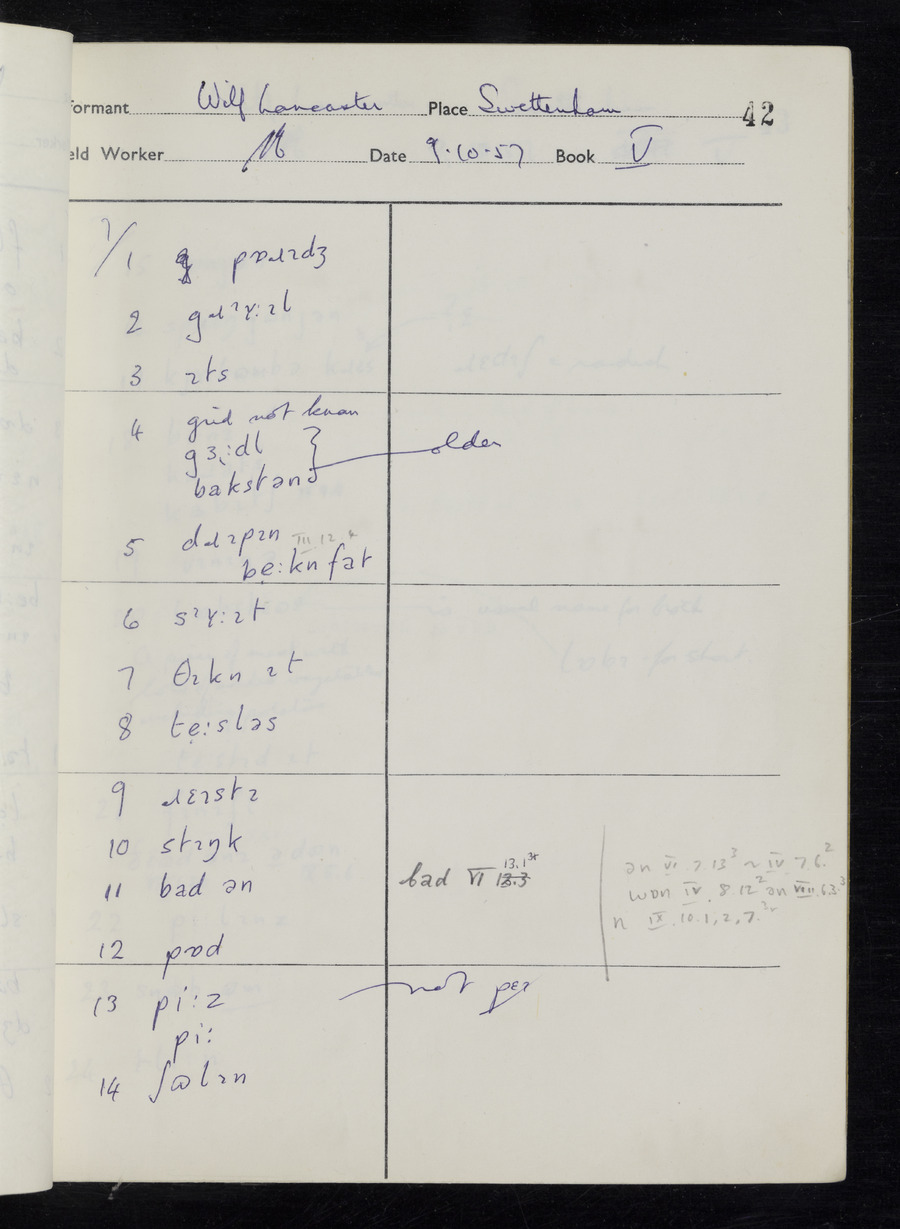 formant Wilf Lancaster Place Swettenham 42
eld Worker Date 9.10.57 Book V
7/1 pɒɹɪdʒ
2 gɹɪɣ:ɪl
3 ɪts
4 grid not known
gɜ:dl
bakstən } older
5 dɹɪpɪn III.12.
bẹ:kn fat
6 sɪɣ:ɪt
7 θɪkn ɪt
8 tẹ:sləs
9 ɹɛɪstɪ
10 stɪŋk
11 bad ən bad VI 13.1 13.3
ən VI.7.13³ ~ IV 7 6.²
wɒn IV. 8.12² ən VIII.6.3.³
n IX.10.1,2,7.
12 pɒd
13 pi:z not pɛɪ
pi:
14 ʃɷlɪn